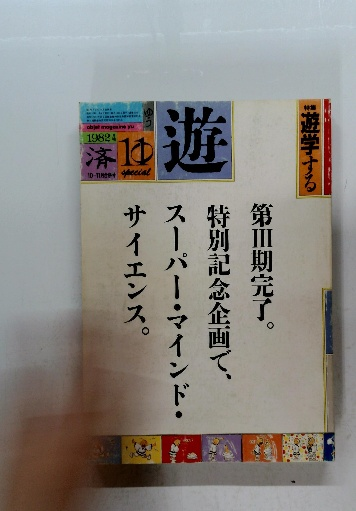 objet magazine yu
1982年
済
10
special
10・11月合併号
ゆう
遊
特集
遊学する
第III期完了。
特別記念企画で、
スーパー・マインド・
サイエンス。